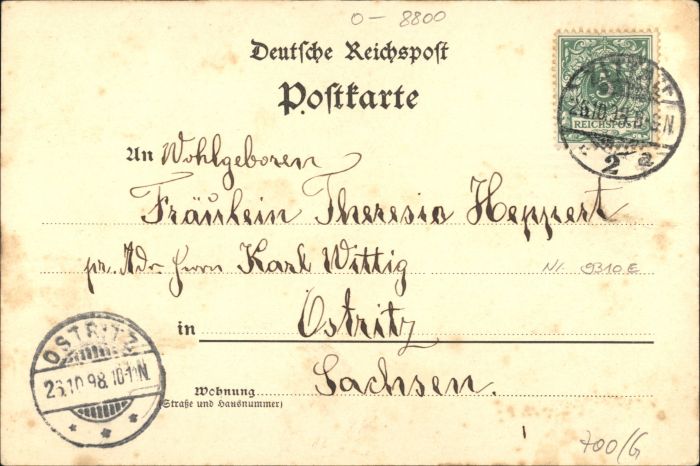 0-8800
Deutsche Reichspost
Postkarte
5
REICHSPOST
26.10.98.
2 a
An Wohlgeboren
Fräulein Theresia Heppert
pr. Adr. Herrn Karl Wittig
Nr. 9310 E
in Ostritz
Sachsen.
Wohnung
(Straße und Hausnummer)
OSTRITZ
26.10.98.10-11N.
700/G